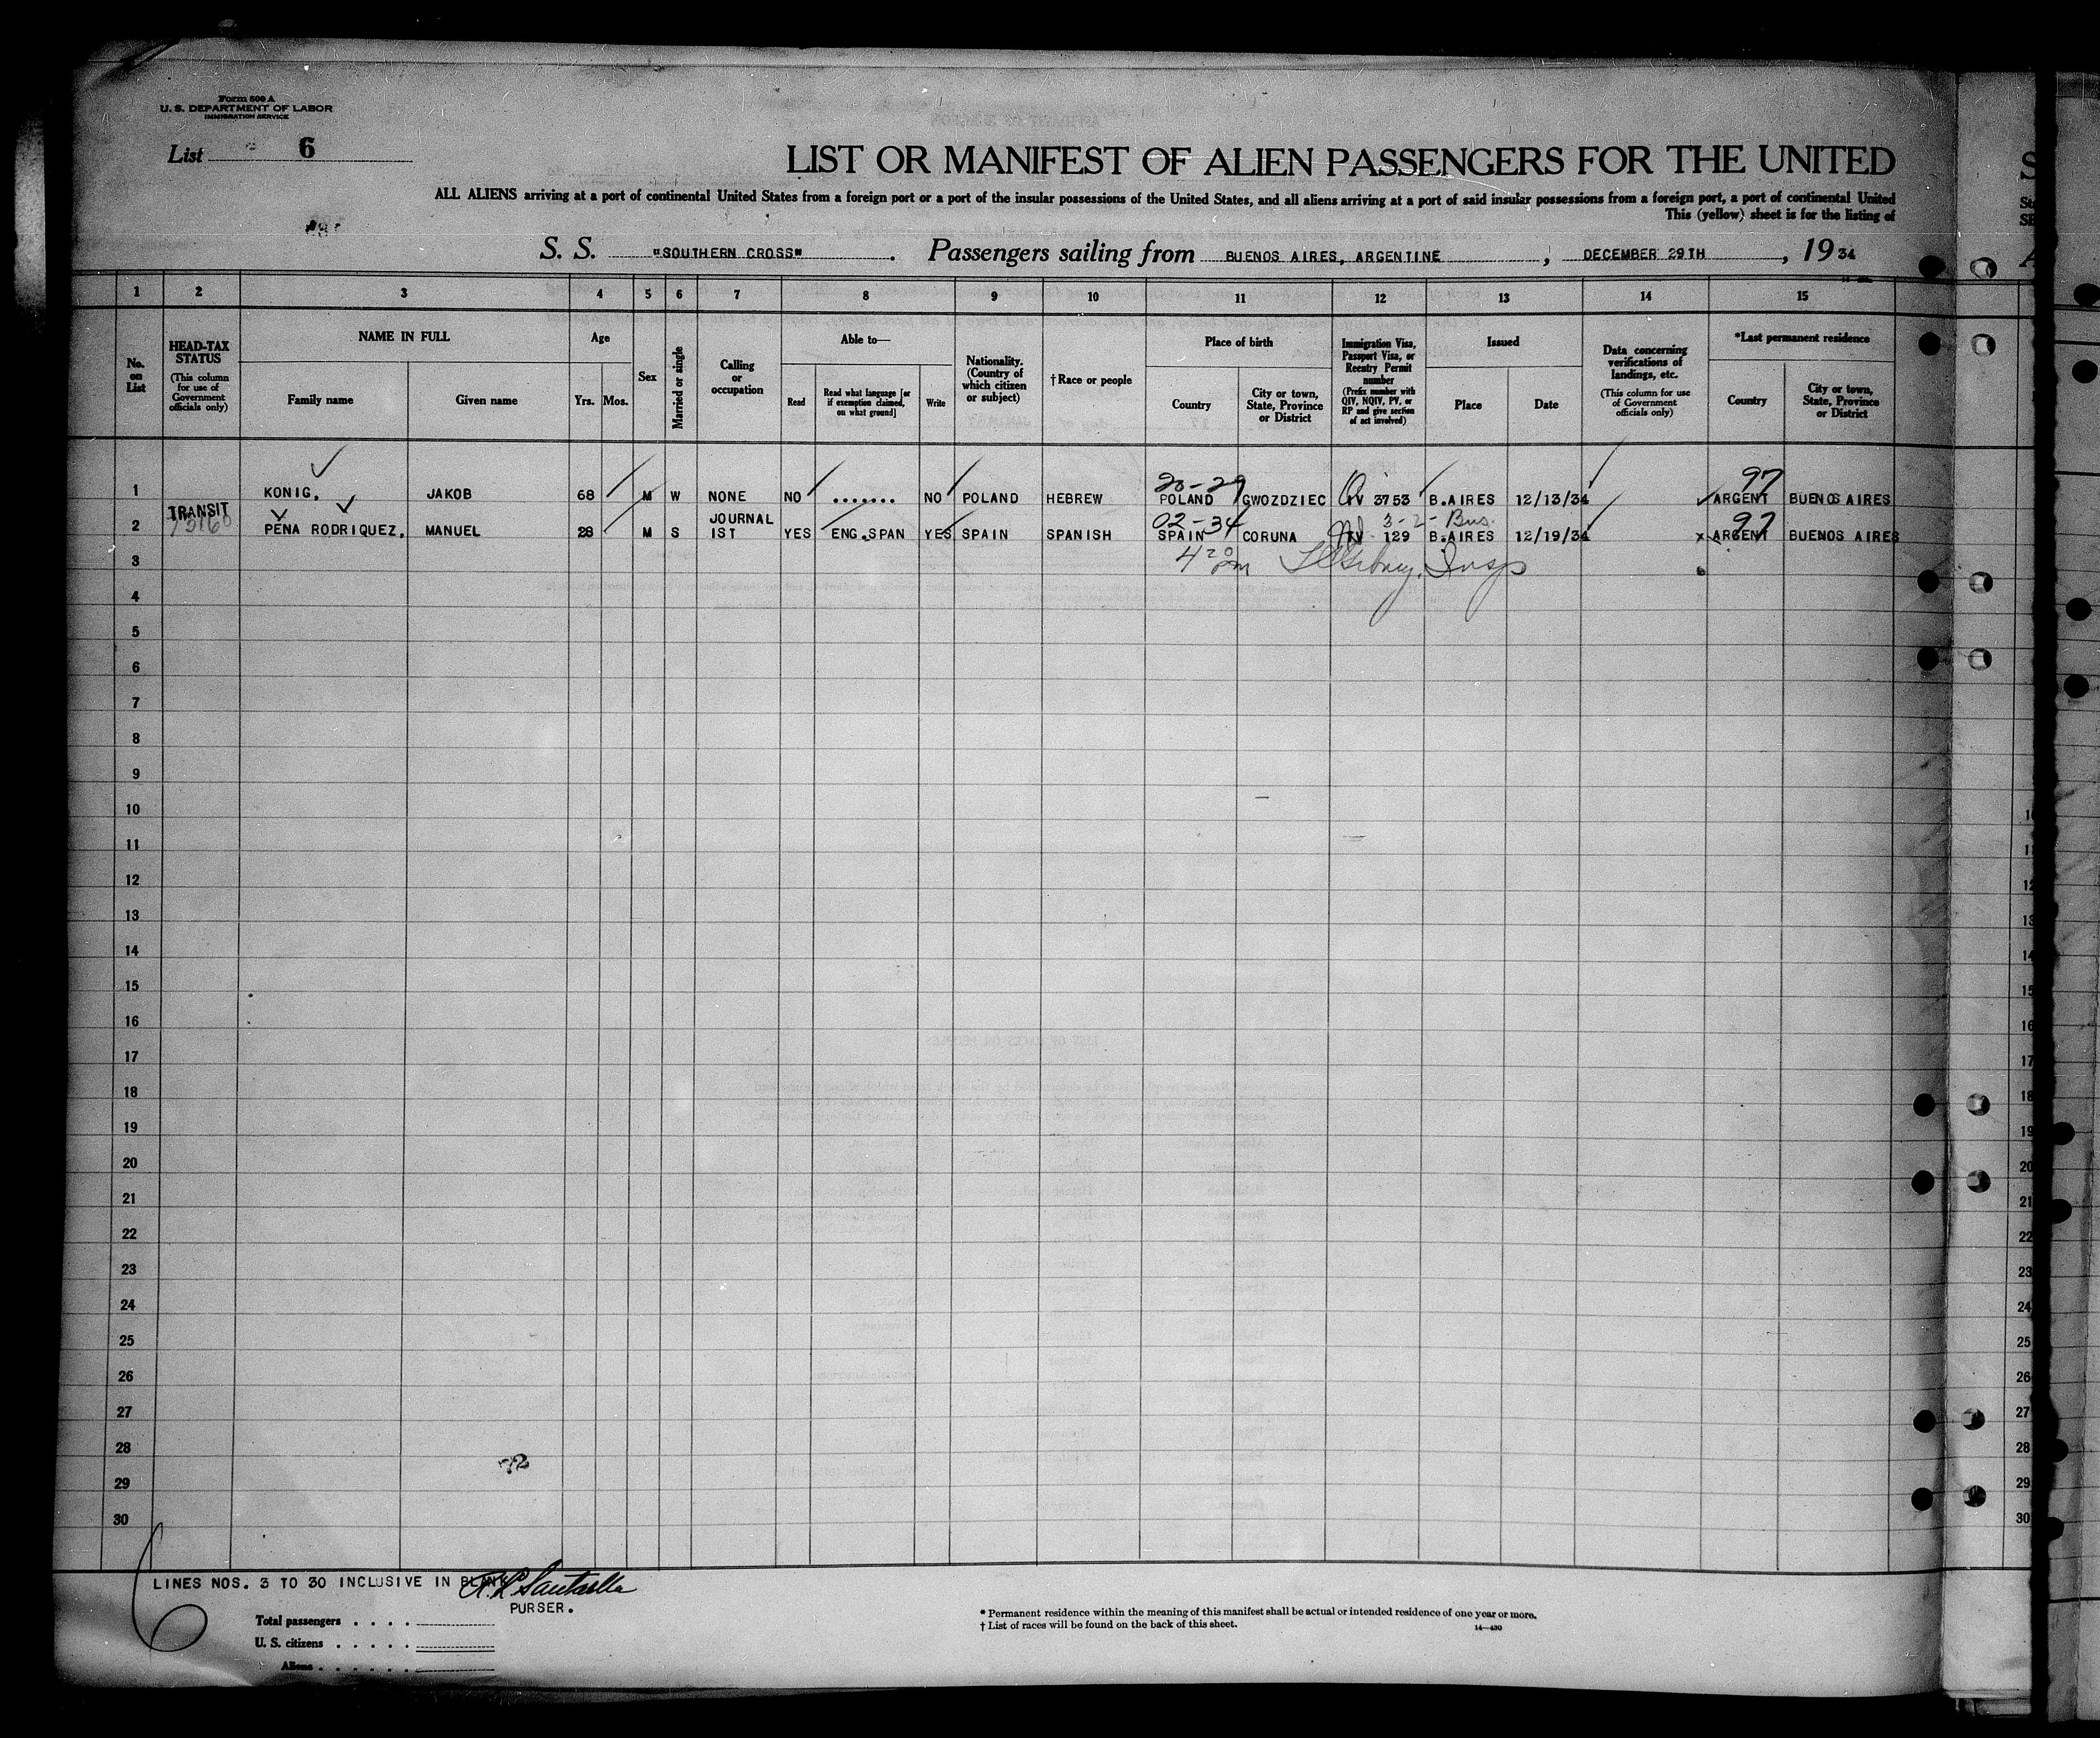 Form 500 A
U. S. DEPARTMENT OF LABOR
IMMIGRATION SERVICE
List 6
LIST OR MANIFEST OF ALIEN PASSENGERS FOR THE UNITED
ALL ALIENS arriving at a port of continental United States from a foreign port or a port of the insular possessions of the United States, and all aliens arriving at a port of said insular possessions from a foreign port, a port of continental United
This (yellow) sheet is for the listing of
S. S. "SOUTHERN CROSS". Passengers sailing from BUENOS AIRES, ARGENTINE, DECEMBER 29TH, 1934
1 2 3 4 5 6 7 8 9 10 11 12 13 14 15
No. on List
HEAD-TAX STATUS (This column for use of Government officials only)
NAME IN FULL
Family name
Given name
Age
Yrs. Mos.
Sex
Married or single
Calling or occupation
Able to—
Read
Read what language [or if exemption claimed, on what ground]
Write
Nationality. (Country of which citizen or subject)
†Race or people
Place of birth
Country
City or town, State, Province or District
Immigration Visa, Passport Visa, or Reentry Permit number (Prefix number with QIV, NQIV, PV, or RP and give section of act involved)
Issued
Place
Date
Data concerning verifications of landings, etc. (This column for use of Government officials only)
*Last permanent residence
Country
City or town, State, Province or District
23-29 97
1 KONIG, JAKOB 68 M W NONE NO ....... NO POLAND HEBREW POLAND GWOZDZIEC QIV 3753 B.AIRES 12/13/34 ARGENT BUENOS AIRES
TRANSIT JOURNAL 02-34 3-2- Bus. 97
2 PENA RODRIQUEZ, MANUEL 28 M S IST YES ENG.SPAN YES SPAIN SPANISH SPAIN CORUNA 129 B.AIRES 12/19/34 x ARGENT BUENOS AIRES
3 4 20 pm Insp
4
5
6
7
8
9
10
11
12
13
14
15
16
17
18
19
20
21
22
23
24
25
26
27
28
29
30
72
LINES NOS. 3 TO 30 INCLUSIVE IN BLANK
PURSER.
6
Total passengers . . . .
U. S. citizens . . . . .
Aliens . . . . . .
* Permanent residence within the meaning of this manifest shall be actual or intended residence of one year or more.
† List of races will be found on the back of this sheet.
14—430